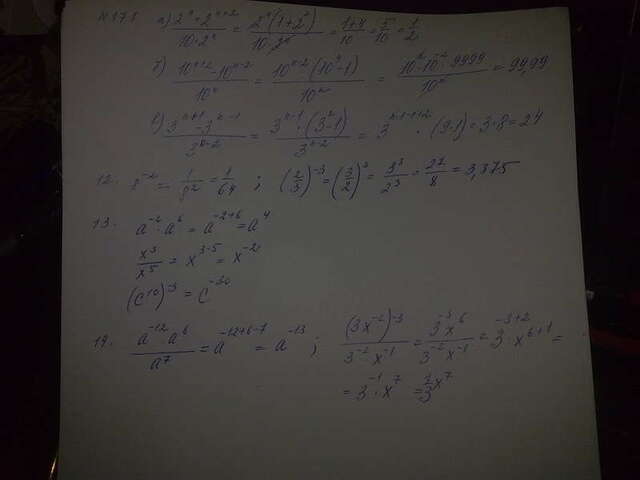 а) (2ⁿ + 2ⁿ⁺²)/(10·2ⁿ) = 2ⁿ(1+2²)/(10·2ⁿ) = (1+4)/10 = 5/10 = 1/2
б) (10ⁿ⁺² - 10ⁿ⁻²)/10ⁿ = 10ⁿ⁻²·(10⁴-1)/10ⁿ = 10ⁿ·10⁻²·9999/10ⁿ = 99,99
в) (3ⁿ⁺¹ - 3ⁿ⁻¹)/3ⁿ⁻² = 3ⁿ⁻¹·(3²-1)/3ⁿ⁻² = 3ⁿ⁻¹⁻ⁿ⁺²·(9-1) = 3·8 = 24
12. 8⁻² = 1/8² = 1/64 ; (2/3)⁻³ = (3/2)³ = 3³/2³ = 27/8 = 3,375
13. a⁻²·a⁶ = a⁻²⁺⁶ = a⁴
x³/x⁵ = x³⁻⁵ = x⁻²
(c¹⁰)⁻³ = c⁻³⁰
a⁻¹²·a⁶/a⁷ = a⁻¹²⁺⁶⁻⁷ = a⁻¹³ ; (3x⁻²)⁻³/(3⁻²·x⁻¹) = 3⁻³x⁶/(3⁻²x⁻¹) = 3⁻³⁺²·x⁶⁺¹ =
= 3⁻¹·x⁷ = 1/3 x⁷